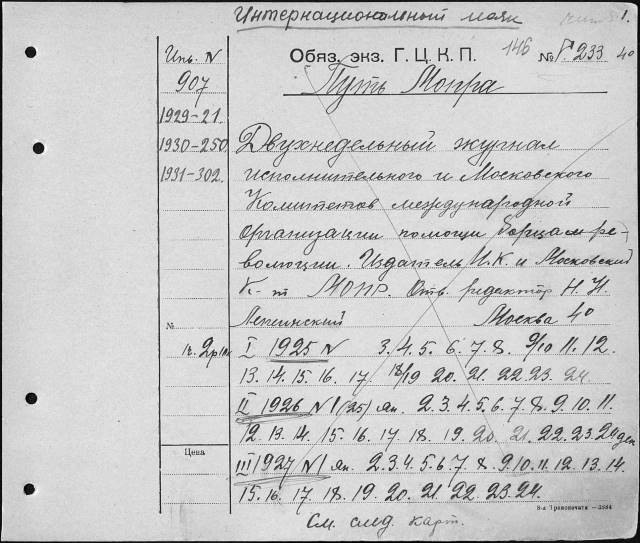 Интернациональный маяк
1.
Инв. N
907
1929-21.
1930-250.
1931-302.
Обяз. экз. Г. Ц. К. П. 146 № 233 40
Путь Мопра
Двухнедельный журнал
исполнительного и Московского
Комитетов международной
организации помощи борцам ре-
волюции. Издатель И.К. и Московский
К-т МОПР. Отв. редактор Н. Н.
Лепешинский Москва 40
№
I 1925 N 3. 4. 5. 6. 7. 8. 9/10 11. 12.
13. 14. 15. 16. 17. 18/19 20. 21. 22. 23. 24.
II 1926 N 1 (25) ян. 2. 3. 4. 5. 6. 7. 8. 9. 10. 11.
12 13. 14. 15. 16. 17. 18. 19. 20. 21. 22. 23. 24 дек
Цена
III 1927 N 1 ян. 2. 3. 4. 5. 6. 7. 8. 9. 10. 11. 12. 13. 14.
15. 16. 17. 18. 19. 20. 21. 22. 23. 24.
См. след. карт.